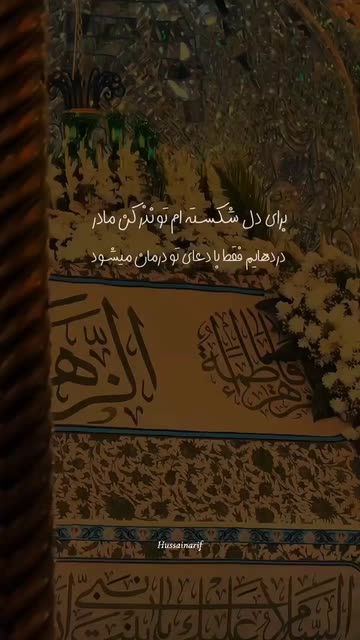 برای دل شکسته ام تو نذر کن مادر
دردهایم فقط با دعای تو درمان میشود
الزهرا
فاطمة الزهراء
Hussainarif
السلام علیك یا بنت نبي